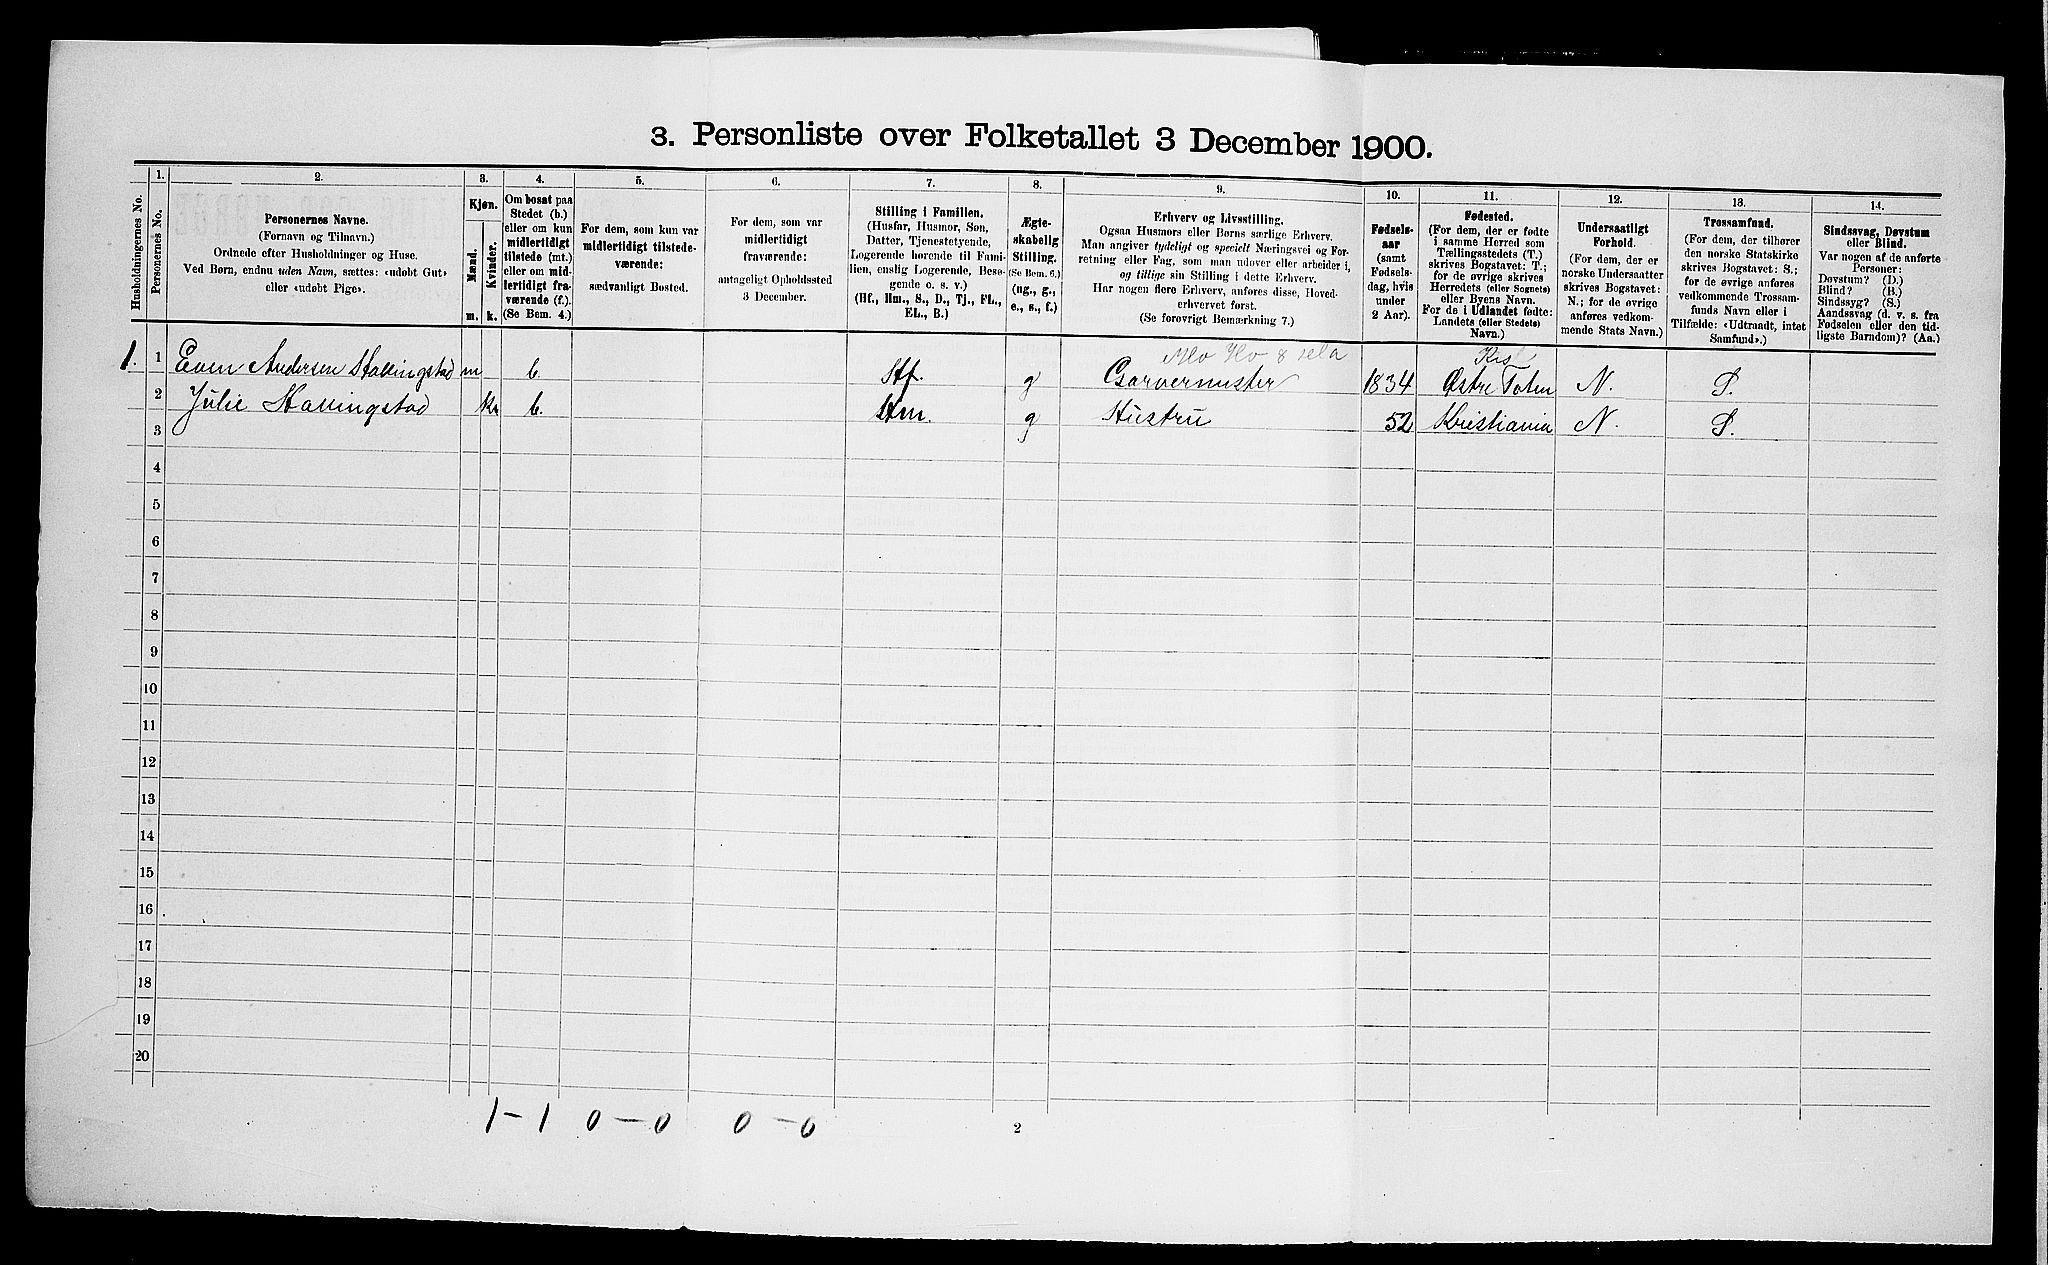 3. Personliste over Folketallet 3 December 1900.
Husholdningernes No.
1.
Personernes No.
2.
Personernes Navne.
(Fornavn og Tilnavn.)
Ordnede efter Husholdninger og Huse.
Ved Børn, endnu uden Navn, sættes: «udøbt Gut»
eller «udøbt Pige».
3.
Kjøn.
Mænd.
Kvinder.
m. k.
4.
Om bosat paa
Stedet (b.)
eller om kun
midlertidigt
tilstede (mt.)
eller om mid-
lertidigt fra-
værende (f.).
(Se Bem. 4.)
5.
For dem, som kun var
midlertidigt tilstede-
værende:
sædvanligt Bosted.
6.
For dem, som var
midlertidigt
fraværende:
antageligt Opholdssted
3 December.
7.
Stilling i Familien.
(Husfar, Husmor, Søn,
Datter, Tjenestetyende,
Logerende hørende til Fami-
lien, enslig Logerende, Besø-
gende o. s. v.)
(Hf., Hm., S., D., Tj., FL.,
EL., B.)
8.
Ægte-
skabelig
Stilling.
(Se Bem. 6.)
(ug., g.,
e., s., f.)
9.
Erhverv og Livsstilling.
Ogsaa Husmors eller Børns særlige Erhverv.
Man angiver tydeligt og specielt Næringsvei og For-
retning eller Fag, som man udøver eller arbeider i,
og tillige sin Stilling i dette Erhverv.
Har nogen flere Erhverv, anføres disse, Hoved-
erhvervet først.
(Se forøvrigt Bemærkning 7.)
10.
Fødsels-
aar
(samt
Fødsels-
dag, hvis
under
2 Aar).
11.
Fødested.
(For dem, der er fødte
i samme Herred som
Tællingsstedets (T.)
skrives Bogstavet: T.;
for de øvrige skrives
Herredets (eller Sognets)
eller Byens Navn.
For de i Udlandet fødte:
Landets (eller Stedets)
Navn.)
12.
Undersaatligt
Forhold.
(For dem, der er
norske Undersaatter
skrives Bogstavet:
N.; for de øvrige
anføres vedkom-
mende Stats Navn.)
13.
Trossamfund.
(For dem, der tilhører
den norske Statskirke
skrives Bogstavet: S.;
for de øvrige anføres
vedkommende Trossam-
funds Navn eller i
Tilfælde: «Udtraadt, intet
Samfund».)
14.
Sindssvag, Døvstum
eller Blind.
Var nogen af de anførte
Personer:
Døvstum? (D.)
Blind? (B.)
Sindssyg? (S.)
Aandssvag (d. v. s. fra
Fødselen eller den tid-
ligste Barndom)? (Aa.)
1. 1 Even Andersen Hallingstad m b. Hf. g Garvermester 1834 Østre Toten N. S.
2 Julie Hallingstad k b. Hm. g Hustru 52 Kristiania N. S.
3
4
5
6
7
8
9
10
11
12
13
14
15
16
17
18
19
20
1 - 1 0 - 0 0 - 0
2